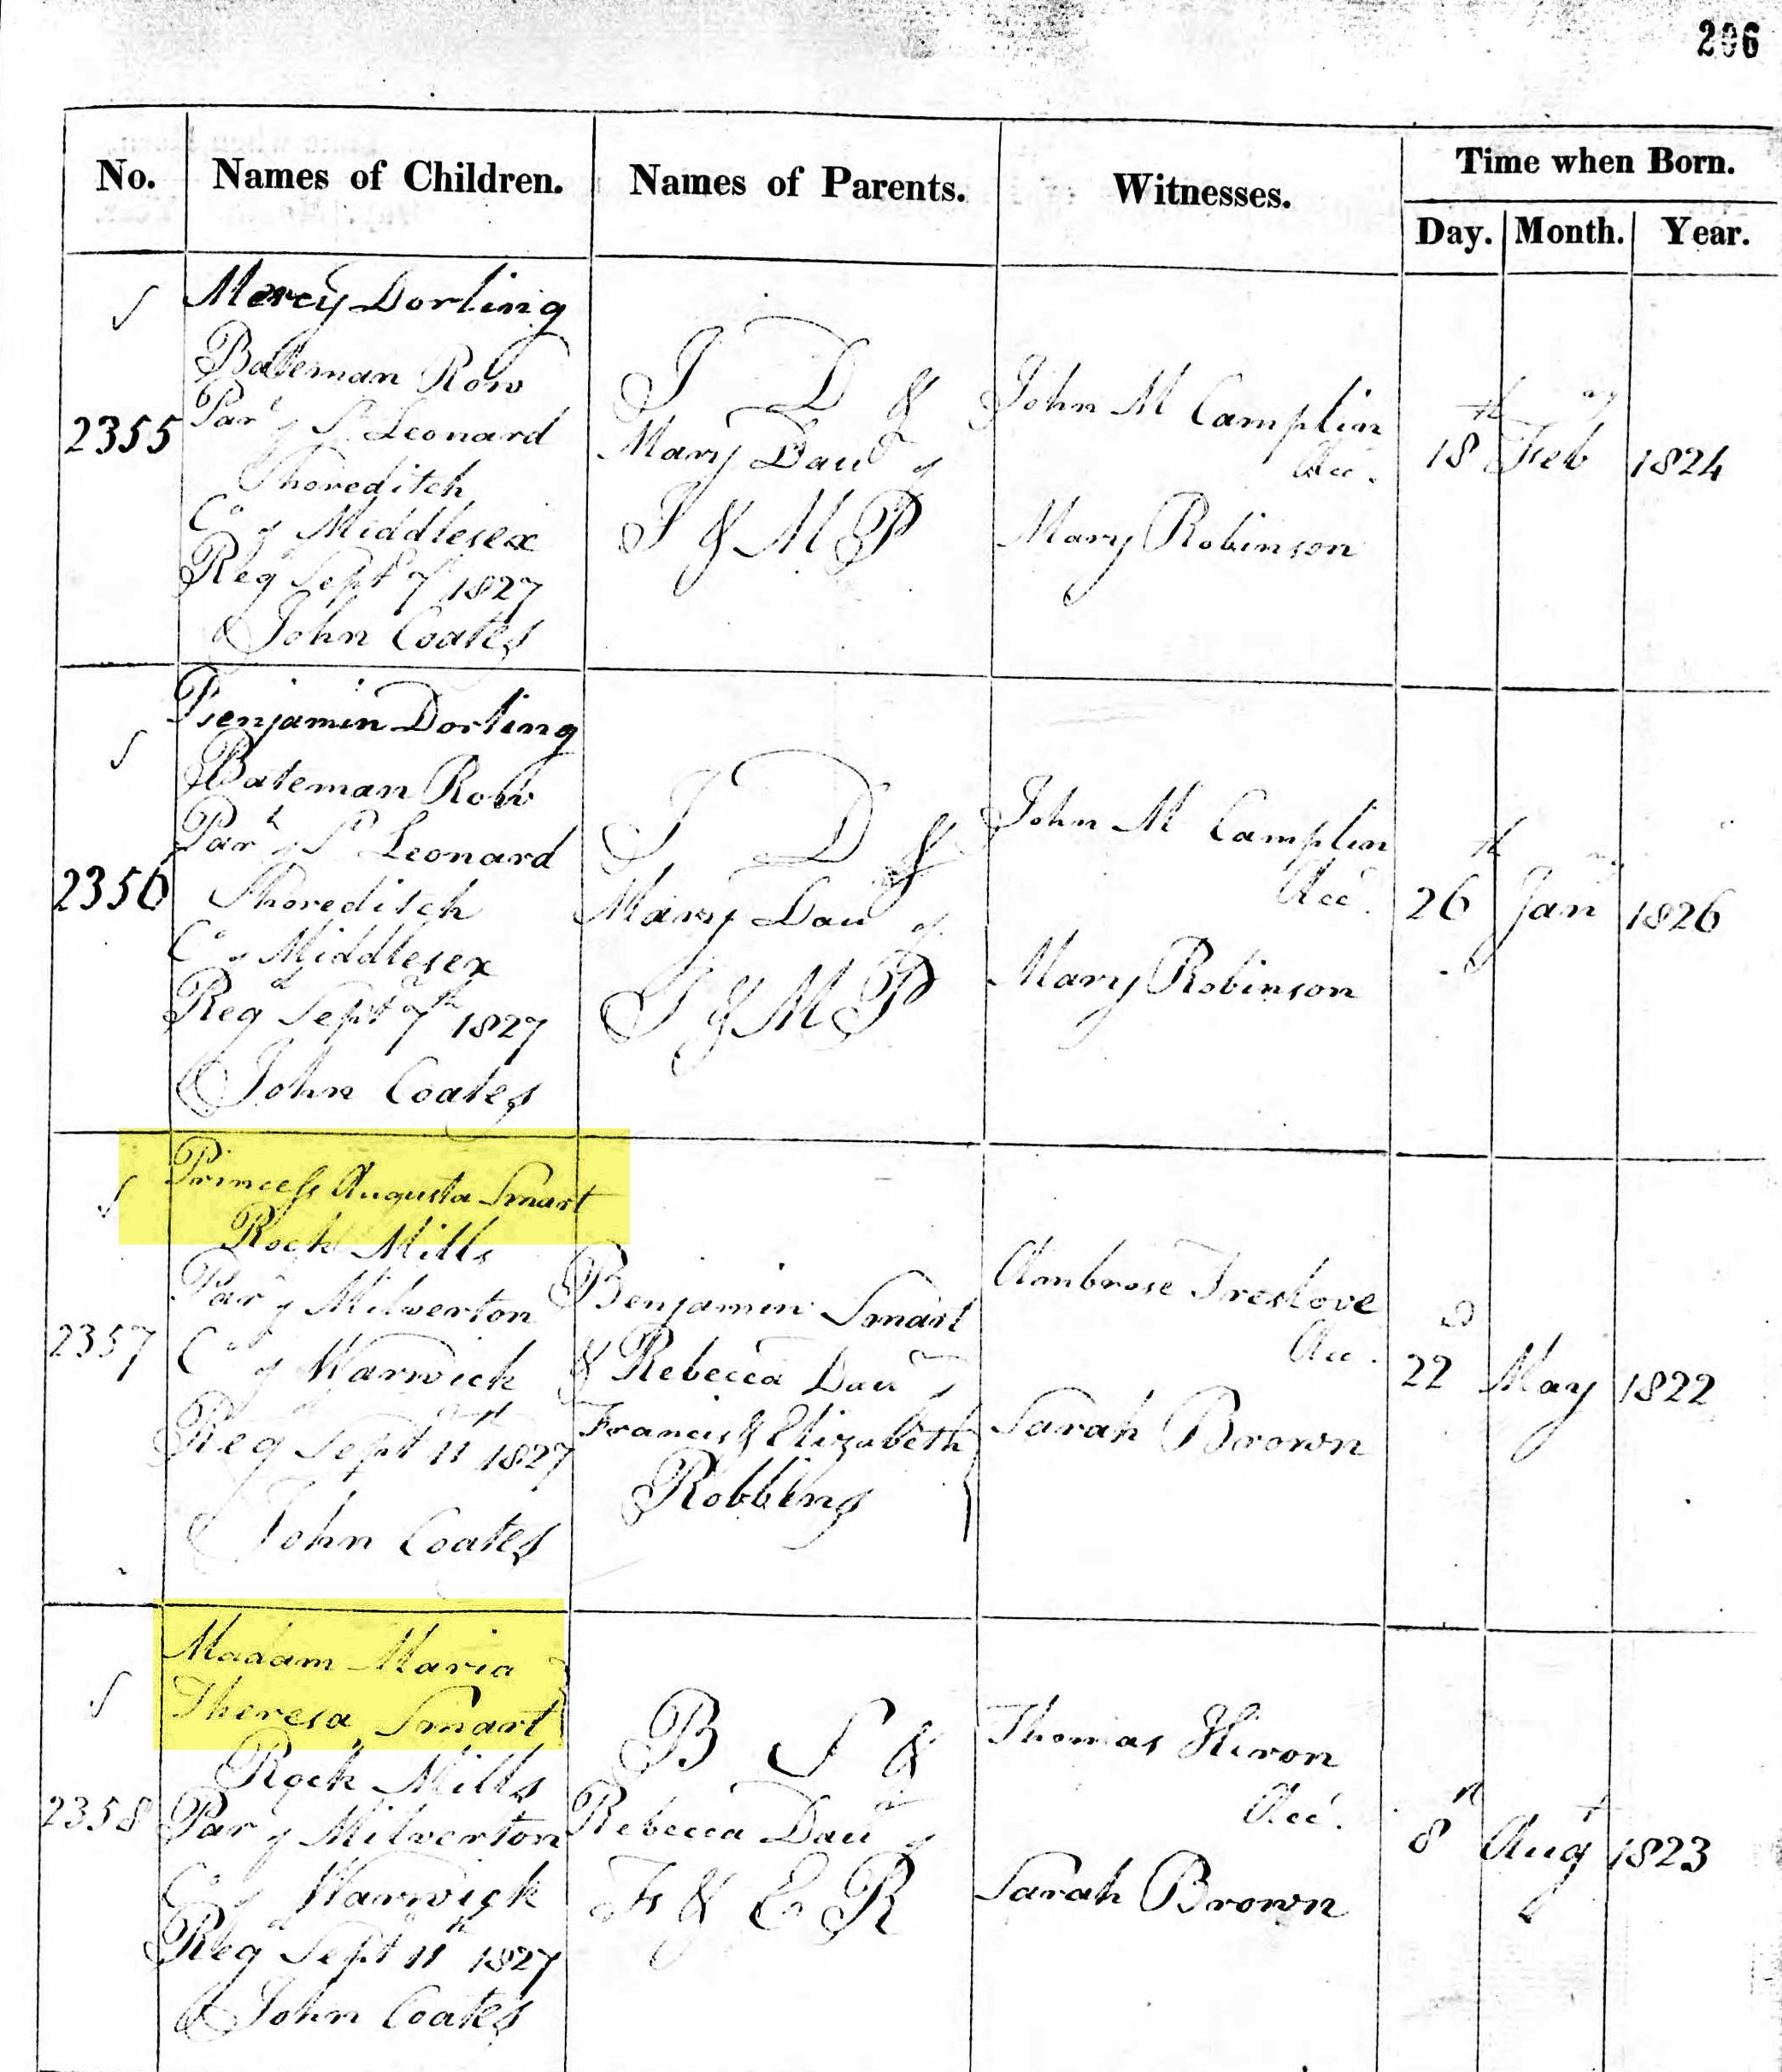 206
No. Names of Children. Names of Parents. Witnesses. Time when Born.
Day. Month. Year.
Mercy Dorling
Bateman Row
Parh of St Leonard
Shoreditch
Co of Middlesex
Regd Septr 7th 1827
John Coates
2355
J D &
Mary Daur of
J & M P
John M Camplin
Acc.
Mary Robinson
18th Feby 1824
Benjamin Dorling
Bateman Row
Parh of St Leonard
Shoreditch
Co of Middlesex
Regd Sept 7th 1827
John Coates
2356
J D &
Mary Daur of
J & M P
John M Camplin
Acc.
Mary Robinson
26th Jany 1826
Princess Augusta Smart
Rock Mills
Parh of Milverton
Co of Warwick
Regd Sept 11th 1827
John Coates
2357
Benjamin Smart
& Rebecca Daur of
Francis & Elizabeth
Robbins
Ambrose Treslove
Acc.
Sarah Brown
22d May 1822
Madam Maria
Theresa Smart
Rock Mills
Par of Milverton
Co of Warwick
Regd Sept 11th 1827
John Coates
2358
B S &
Rebecca Daur of
F & E R
Thomas Hiron
Acc.
Sarah Brown
8th Augt 1823